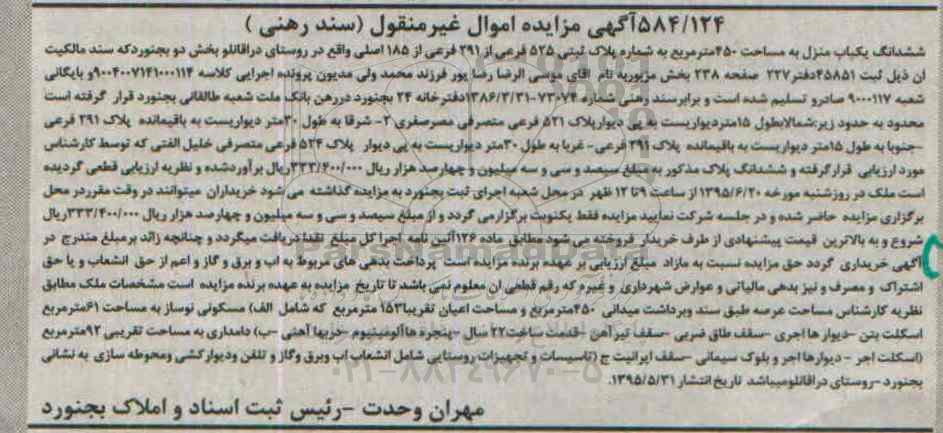 ۵۸۴/۱۲۴آگهی مزایده اموال غیرمنقول (سند رهنی )
ششدانگ یکباب منزل به مساحت ۴۵۰مترمربع به شماره پلاک ثبتی ۵۲۵ فرعی از ۲۹۱ فرعی از ۱۸۵ اصلی واقع در روستای دراقانلو بخش دو بجنوردکه سند مالکیت
ان ذیل ثبت ۴۵۸۵۱دفتر۲۲۷ صفحه ۲۳۸ بخش مزبوربه نام اقای موسی الرضا رضا پور فرزند محمد ولی مدیون پرونده اجرایی کلاسه ۹۰۰۴۰۰۷۱۴۱۰۰۰۱۱۴و بایگانی
شعبه ۹۰۰۰۱۱۷ صادرو تسلیم شده است و برابرسند رهنی شماره ۷۳۰۷۴-۱۳۸۶/۳/۳۱دفترخانه ۲۴ بجنورد دررهن بانک ملت شعبه طالقانی بجنورد قرار گرفته است
محدود به حدود زیر:شمالابطول ۱۵متردیواریست به پی دیوارپلاک ۵۲۱ فرعی متصرفی مصرصفری ۲- شرقا به طول ۳۰متر دیواریست به باقیمانده پلاک ۲۹۱ فرعی
-جنوبا به طول ۱۵متر دیواریست به باقیمانده پلاک ۲۹۱ فرعی- غربا به طول ۳۰متر دیواریست به پی دیوار پلاک ۵۲۴ فرعی متصرفی خلیل الفتی که توسط کارشناس
مورد ارزیابی قرارگرفته و ششدانگ پلاک مذکور به مبلغ سیصد و سی و سه میلیون و چهارصد هزار ریال ۳۳۳/۴۰۰/۰۰۰ریال برآوردشده و نظریه ارزیابی قطعی گردیده
است ملک در روزشنبه مورخه ۱۳۹۵/۶/۲۰ از ساعت ۹تا ۱۲ ظهر در محل شعبه اجرای ثبت بجنورد به مزایده گذاشته می شود خریداران میتوانند در وقت مقرردر محل
برگزاری مزایده حاضر شده و در جلسه شرکت نمایید مزایده فقط یکنوبت برگزارمی گردد و از مبلغ سیصد و سی و سه میلیون و چهارصد هزار ریال ۳۳۳/۴۰۰/۰۰۰ریال
شروع و به بالاترین قیمت پیشنهادی از طرف خریدار فروخته می شود مطابق ماده ۱۲۶آئین نامه اجرا کل مبلغ نقدا دریافت میگردد و چنانچه زائد برمبلغ مندرج در
آگهی خریداری گردد حق مزایده نسبت به مازاد مبلغ ارزیابی بر عهده برنده مزایده است پرداخت بدهی های مربوط به اب و برق و گاز و اعم از حق انشعاب و یا حق
اشتراک و مصرف و نیز بدهی مالیاتی و عوارض شهرداری و غیره که رقم قطعی ان معلوم نمی باشد تا تاریخ مزایده به عهده برنده مزایده است مشخصات ملک مطابق
نظریه کارشناس مساحت عرصه طبق سند وبرداشت میدانی ۴۵۰مترمربع و مساحت اعیان تقریبا۱۵۳ مترمربع که شامل الف) مسکونی نوساز به مساحت ۶۱مترمربع
اسکلت بتن -دیوار ها اجری -سقف طاق ضربی -سقف تیرآهن -قدمت ساخت۲۲ سال -پنجره هاآلومینیوم -دربها آهنی -ب) دامداری به مساحت تقریبی ۹۲مترمربع
(اسکلت اجر -دیوارها اجر و بلوک سیمانی -سقف ایرانیت ج (تاسیسات و تجهیزات روستایی شامل انشعاب اب وبرق وگاز و تلفن ودیوارکشی ومحوطه سازی به نشانی
بجنورد -روستای دراقانلومیباشد تاریخ انتشار ۱۳۹۵/۵/۳۱.
مهران وحدت -رئیس ثبت اسناد و املاک بجنورد
۰۲۱-۸۸۳۴۹۶۷۰-۵